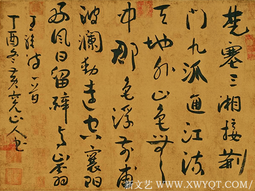 楚塞三湘接荆
门九派通江流
天地外山色有无
中郡邑浮前浦
波澜动远空襄阳
好风日留醉与山翁
王维诗一首
丁酉冬山人书
文艺 WWW.XWYQT.COM